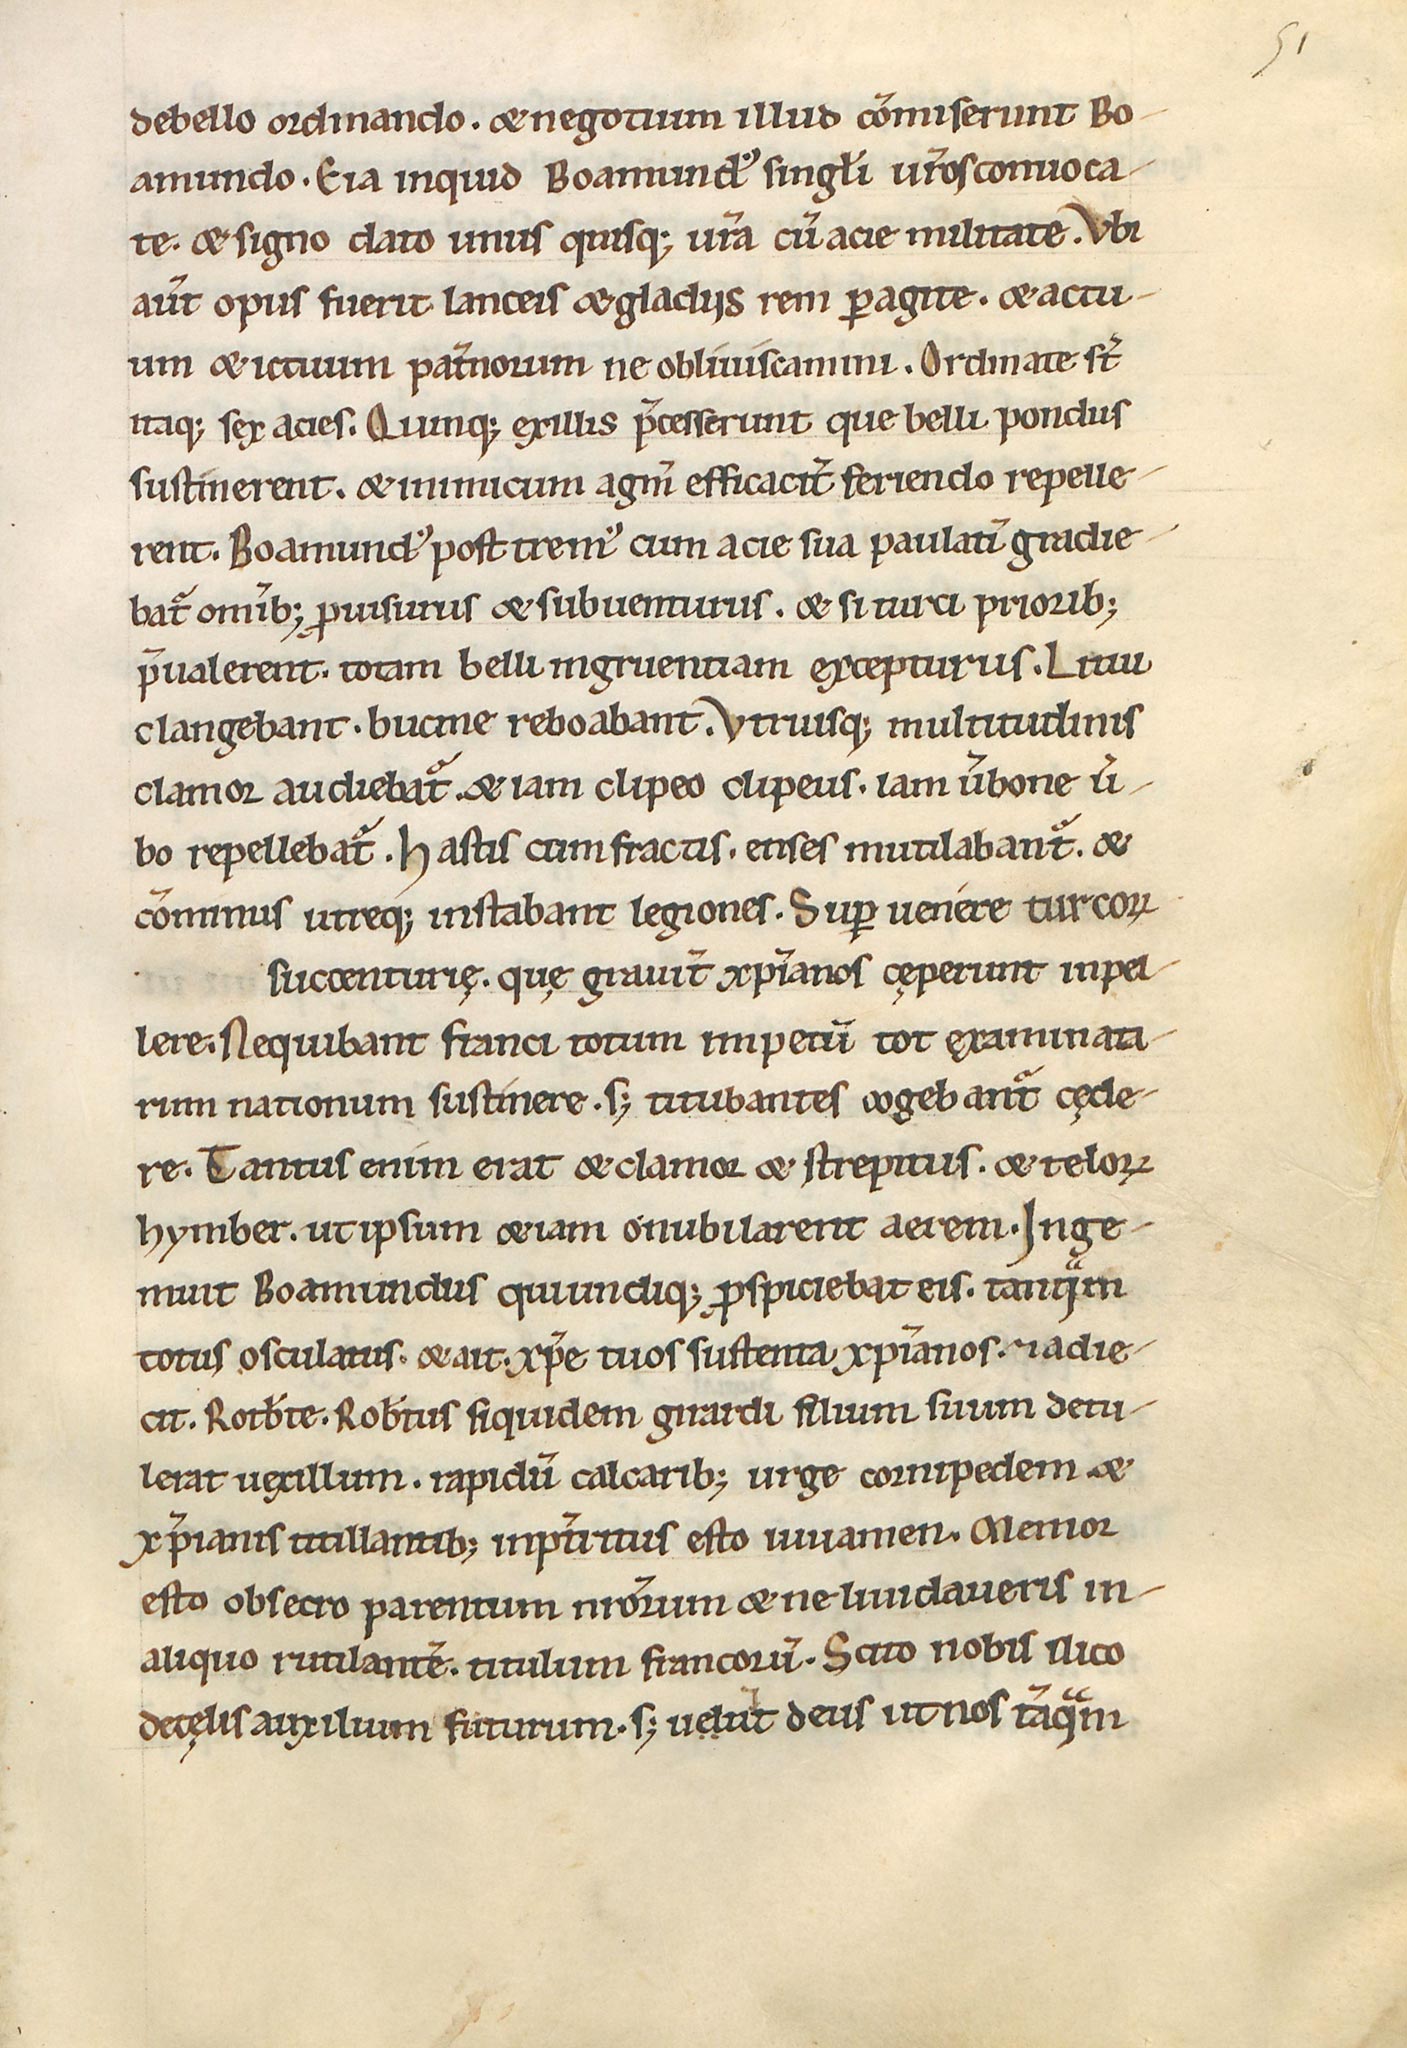 51
debello ordinando. & negotium illud cōmiserunt Bo-
amundo. Eia inquid Boamundꝰ singłi ur̄os conuoca-
te. & signo dato unus quisq; ur̄a cū acie militate. Vbi
aūt opus fuerit lanceis & gladijs rem ꝑagite. & actu-
um & ictuum pat̄norum ne obliuiscamini. Ordinate st̄
itaq; sex acies. Quinq; exillis p̄cesserunt que belli pondus
sustinerent. & inimicum agm̄ efficacit̄ feriendo repelle-
rent. Boamundꝰ post tremꝰ cum acie sua paulatī gradie-
bat᷑ omīb; ꝓuisurus & subuenturus. & si turci priorib;
p̄ualerent. totam belli ingruentiam excepturus. Litui
clangebant. bucine reboabant. Vtriusq; multitudinis
clamor audiebat᷑. & iam clipeo clipeus. iam ūbone ū-
bo repellebat᷑. Hastis cumfractis. enses mutilabant᷑. &
cōminus utreq; instabant legiones. Suꝑ uenere turcoꝝ
succenturię. quę grauit̄ xp̄ianos cęperunt inpel-
lere. Nequibant franci totum impetū tot examinata-
rum nationum sustinere. s; titubantes cogebant᷑ cęde-
re. Tantus enim erat & clamor & strepitus. & teloꝝ
hymber. ut ipsum &iam onubilarent aerem. Inge-
muit Boamundus qui undiq; ꝓspiciebat eis. tanqᵃm
totus osculatus. & ait. xp̄e tuos sustenta xp̄ianos. ⁊ adie-
cit. Rotb̄te. Rob̄tus siquidem girardi filium suum detu-
lerat uexillum. rapidū calcarib; urge cornipedem &
xp̄ianis titillantib; inp̄t̄ritus esto iuuamen. Memor
esto obsecro parentum nr̄orum & ne liuidaueris in-
aliquo rutilantē. titulum francorū. Scito nobis ilico
decęlis auxilium futurum. s; uelut deus ut nos tāqᵃm